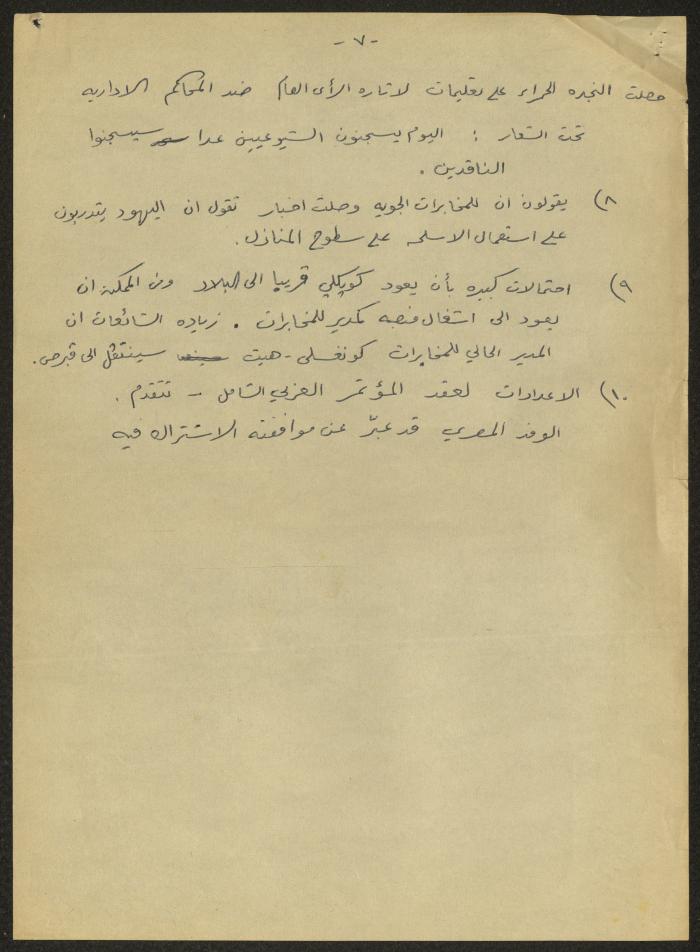 - ٧ -
حصلت النجده الحمراء على تعليمات لاثاره الرأى العام ضد المحاكم الاداريه
تحت الشعار : اليوم يسجنون الشيوعيين غدا سيسجنوا
الناقدين .
٨) يقولون ان للمخابرات الجويه وصلت اخبار تقول ان اليهود يتدربون
على استعمال الاسلحه على سطوح المنازل .
٩) احتمالات كبيره بأن يعود كويكلي قريبا الى البلاد ومن الممكن ان
يعود الى اشغال منصبه كمدير للمخابرات . زياده الشائعات ان
المدير الحالي للمخابرات كونغسلى - هيت سينتقل الى قبرص .
١٠) الاعدادات لعقد المؤتمر العربي الشامل - تتقدم .
الوفد المصري قد عبّر عن موافقته الاشتراك فيه